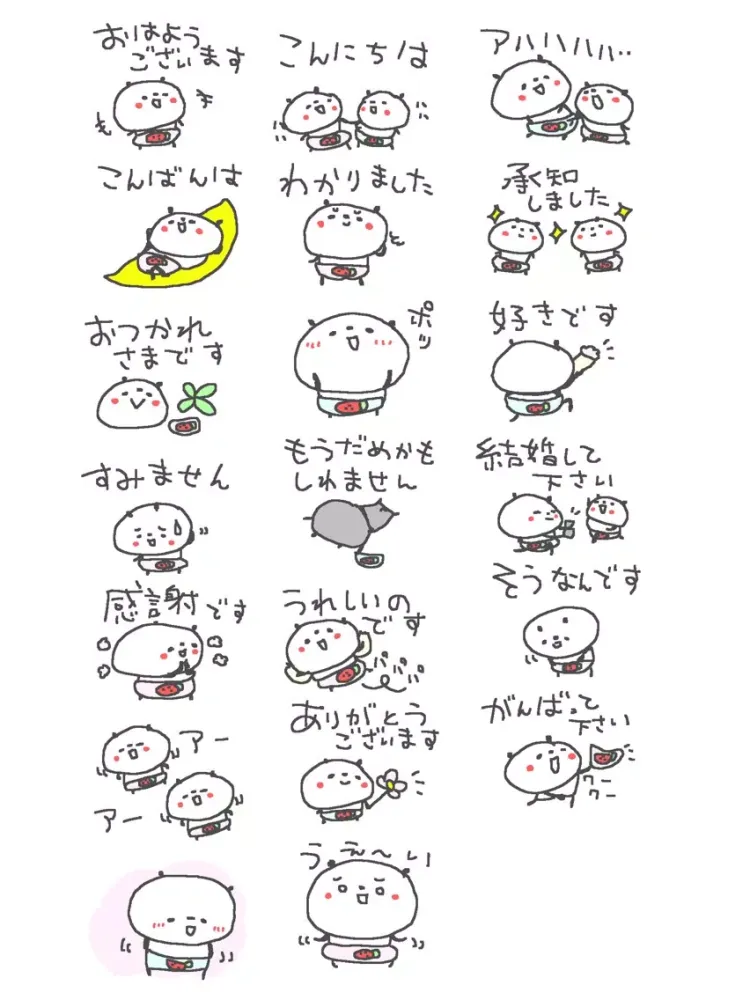 おはよう
ございます
こんにちは
アハハハハ‥
こんばんは
わかりました
承知
しました
おつかれ
さまです
ポッ
好きです
すみません
もうだめかも
しれません
結婚して
下さい
感謝です
うれしいの
です
パパパパ
そうなんです
アー
アー
ありがとう
ございます
がんばって
下さい
クー
クー
うぇ〜い